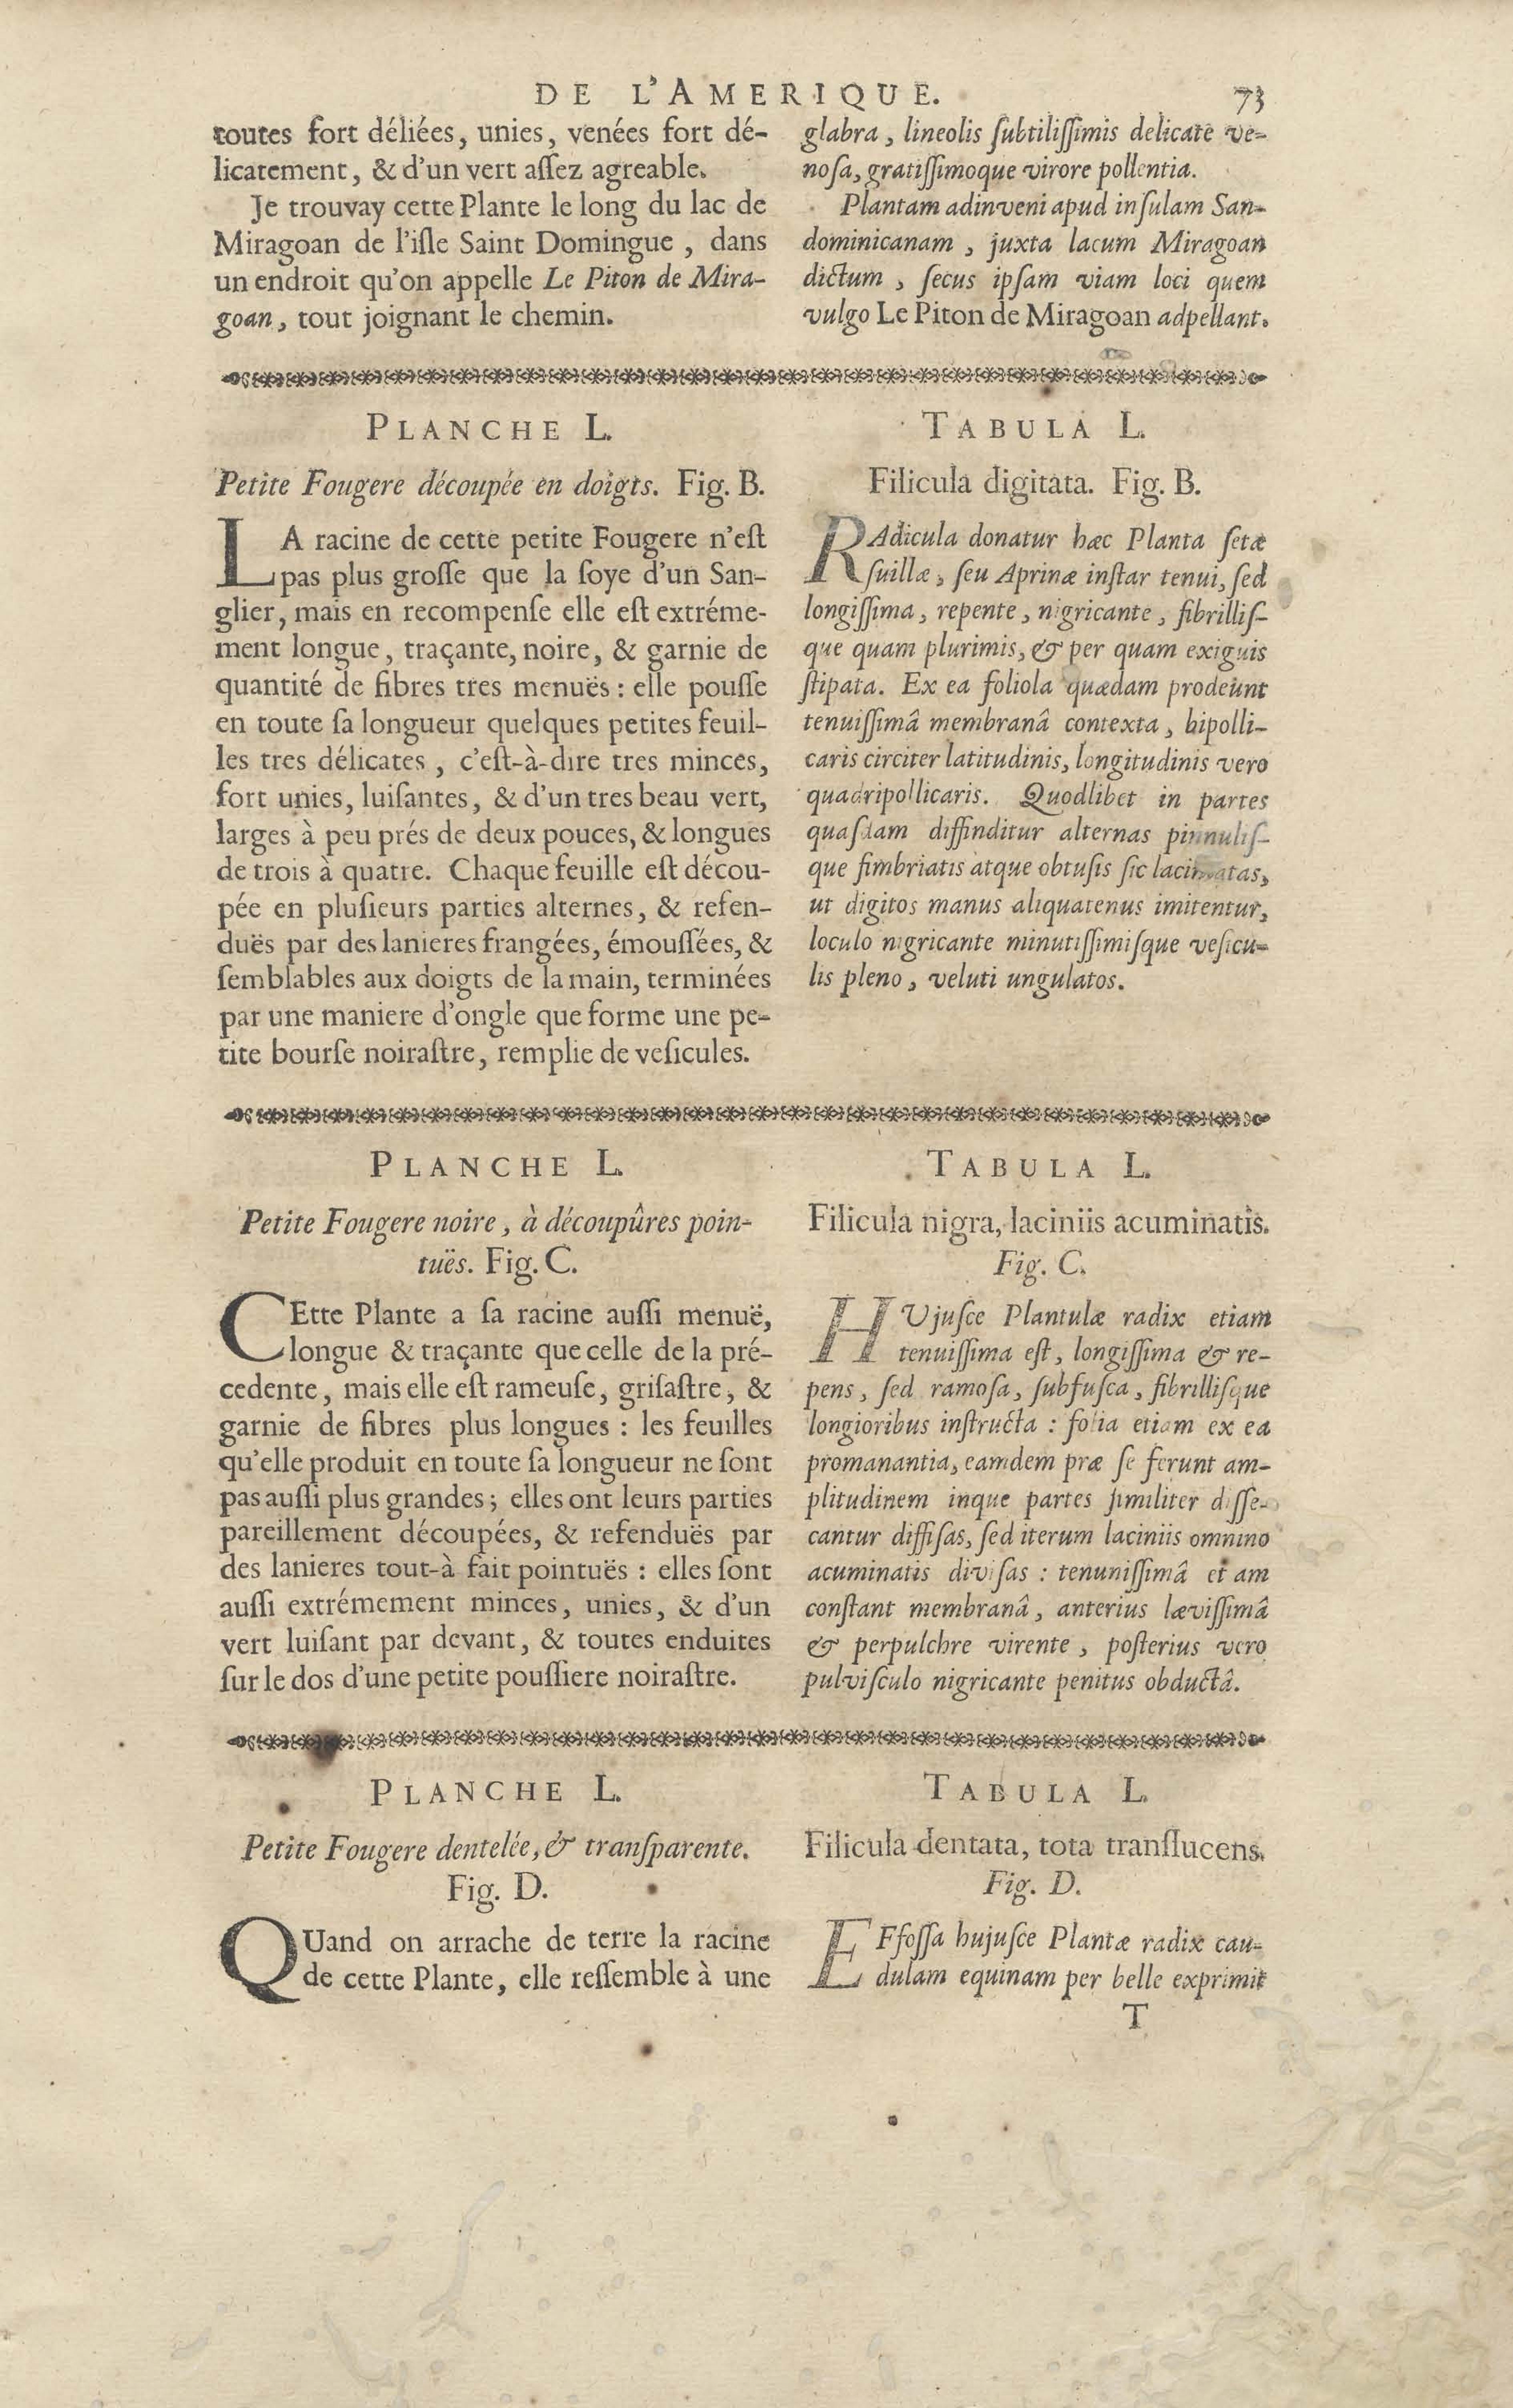 DE L'AMERIQUE. 73
toutes fort déliées, unies, venées fort dé-
licatement, & d'un vert aſſez agreable.
Je trouvay cette Plante le long du lac de
Miragoan de l'iſle Saint Domingue, dans
un endroit qu'on appelle Le Piton de Mira-
goan, tout joignant le chemin.
glabra, lineolis ſubtiliſſimis delicate ve-
noſa, gratiſſimoque virore pollentia.
Plantam adinveni apud inſulam San-
dominicanam, juxta lacum Miragoan
dictum, ſecus ipſam viam loci quem
vulgo Le Piton de Miragoan adpellant.
PLANCHE L.
Petite Fougere découpée en doigts. Fig. B.
LA racine de cette petite Fougere n'eſt
pas plus groſſe que la ſoye d'un San-
glier, mais en recompenſe elle eſt extréme-
ment longue, traçante, noire, & garnie de
quantité de fibres tres menuës : elle pouſſe
en toute ſa longueur quelques petites feuil-
les tres délicates, c'eſt-à-dire tres minces,
fort unies, luiſantes, & d'un tres beau vert,
larges à peu prés de deux pouces, & longues
de trois à quatre. Chaque feuille eſt décou-
pée en pluſieurs parties alternes, & refen-
duës par des lanieres frangées, émouſſées, &
ſemblables aux doigts de la main, terminées
par une maniere d'ongle que forme une pe-
tite bourſe noiraſtre, remplie de veſicules.
TABULA L.
Filicula digitata. Fig. B.
RAdicula donatur hæc Planta ſetæ
ſuillæ, ſeu Aprinæ inſtar tenui, ſed
longiſſima, repente, nigricante, fibrilliſ-
que quam plurimis, & per quam exiguis
ſtipata. Ex ea foliola quædam prodeunt
tenuiſſimâ membranâ contexta, bipolli-
caris circiter latitudinis, longitudinis vero
quadripollicaris. Quodlibet in partes
quaſdam diffinditur alternas pinnuliſ-
que fimbriatis atque obtuſis ſic laciniatas,
ut digitos manus aliquatenus imitentur,
loculo nigricante minutiſſimiſque veſicu-
lis pleno, veluti ungulatos.
PLANCHE L.
Petite Fougere noire, à découpûres poin-
tuës. Fig. C.
CEtte Plante a ſa racine auſſi menuë,
longue & traçante que celle de la pré-
cedente, mais elle eſt rameuſe, griſaſtre, &
garnie de fibres plus longues : les feuilles
qu'elle produit en toute ſa longueur ne ſont
pas auſſi plus grandes ; elles ont leurs parties
pareillement découpées, & refenduës par
des lanieres tout-à fait pointuës : elles ſont
auſſi extrémement minces, unies, & d'un
vert luiſant par devant, & toutes enduites
ſur le dos d'une petite pouſſiere noiraſtre.
TABULA L.
Filicula nigra, laciniis acuminatis.
Fig. C.
HUjuſce Plantulæ radix etiam
tenuiſſima eſt, longiſſima & re-
pens, ſed ramoſa, ſubfuſca, fibrilliſque
longioribus inſtructa : folia etiam ex ea
promanantia, eamdem præ ſe ferunt am-
plitudinem inque partes ſimiliter diſſe-
cantur diffiſas, ſed iterum laciniis omnino
acuminatis diviſas : tenuniſſimâ et am
conſtant membranâ, anterius læviſſimâ
& perpulchre virente, poſterius vero
pulviſculo nigricante penitus obductâ.
PLANCHE L.
Petite Fougere dentelée, & tranſparente.
Fig. D.
QUand on arrache de terre la racine
de cette Plante, elle reſſemble à une
TABULA L.
Filicula dentata, tota tranſlucens.
Fig. D.
EFfoſſa hujuſce Plantæ radix cau-
dulam equinam per belle exprimit
T